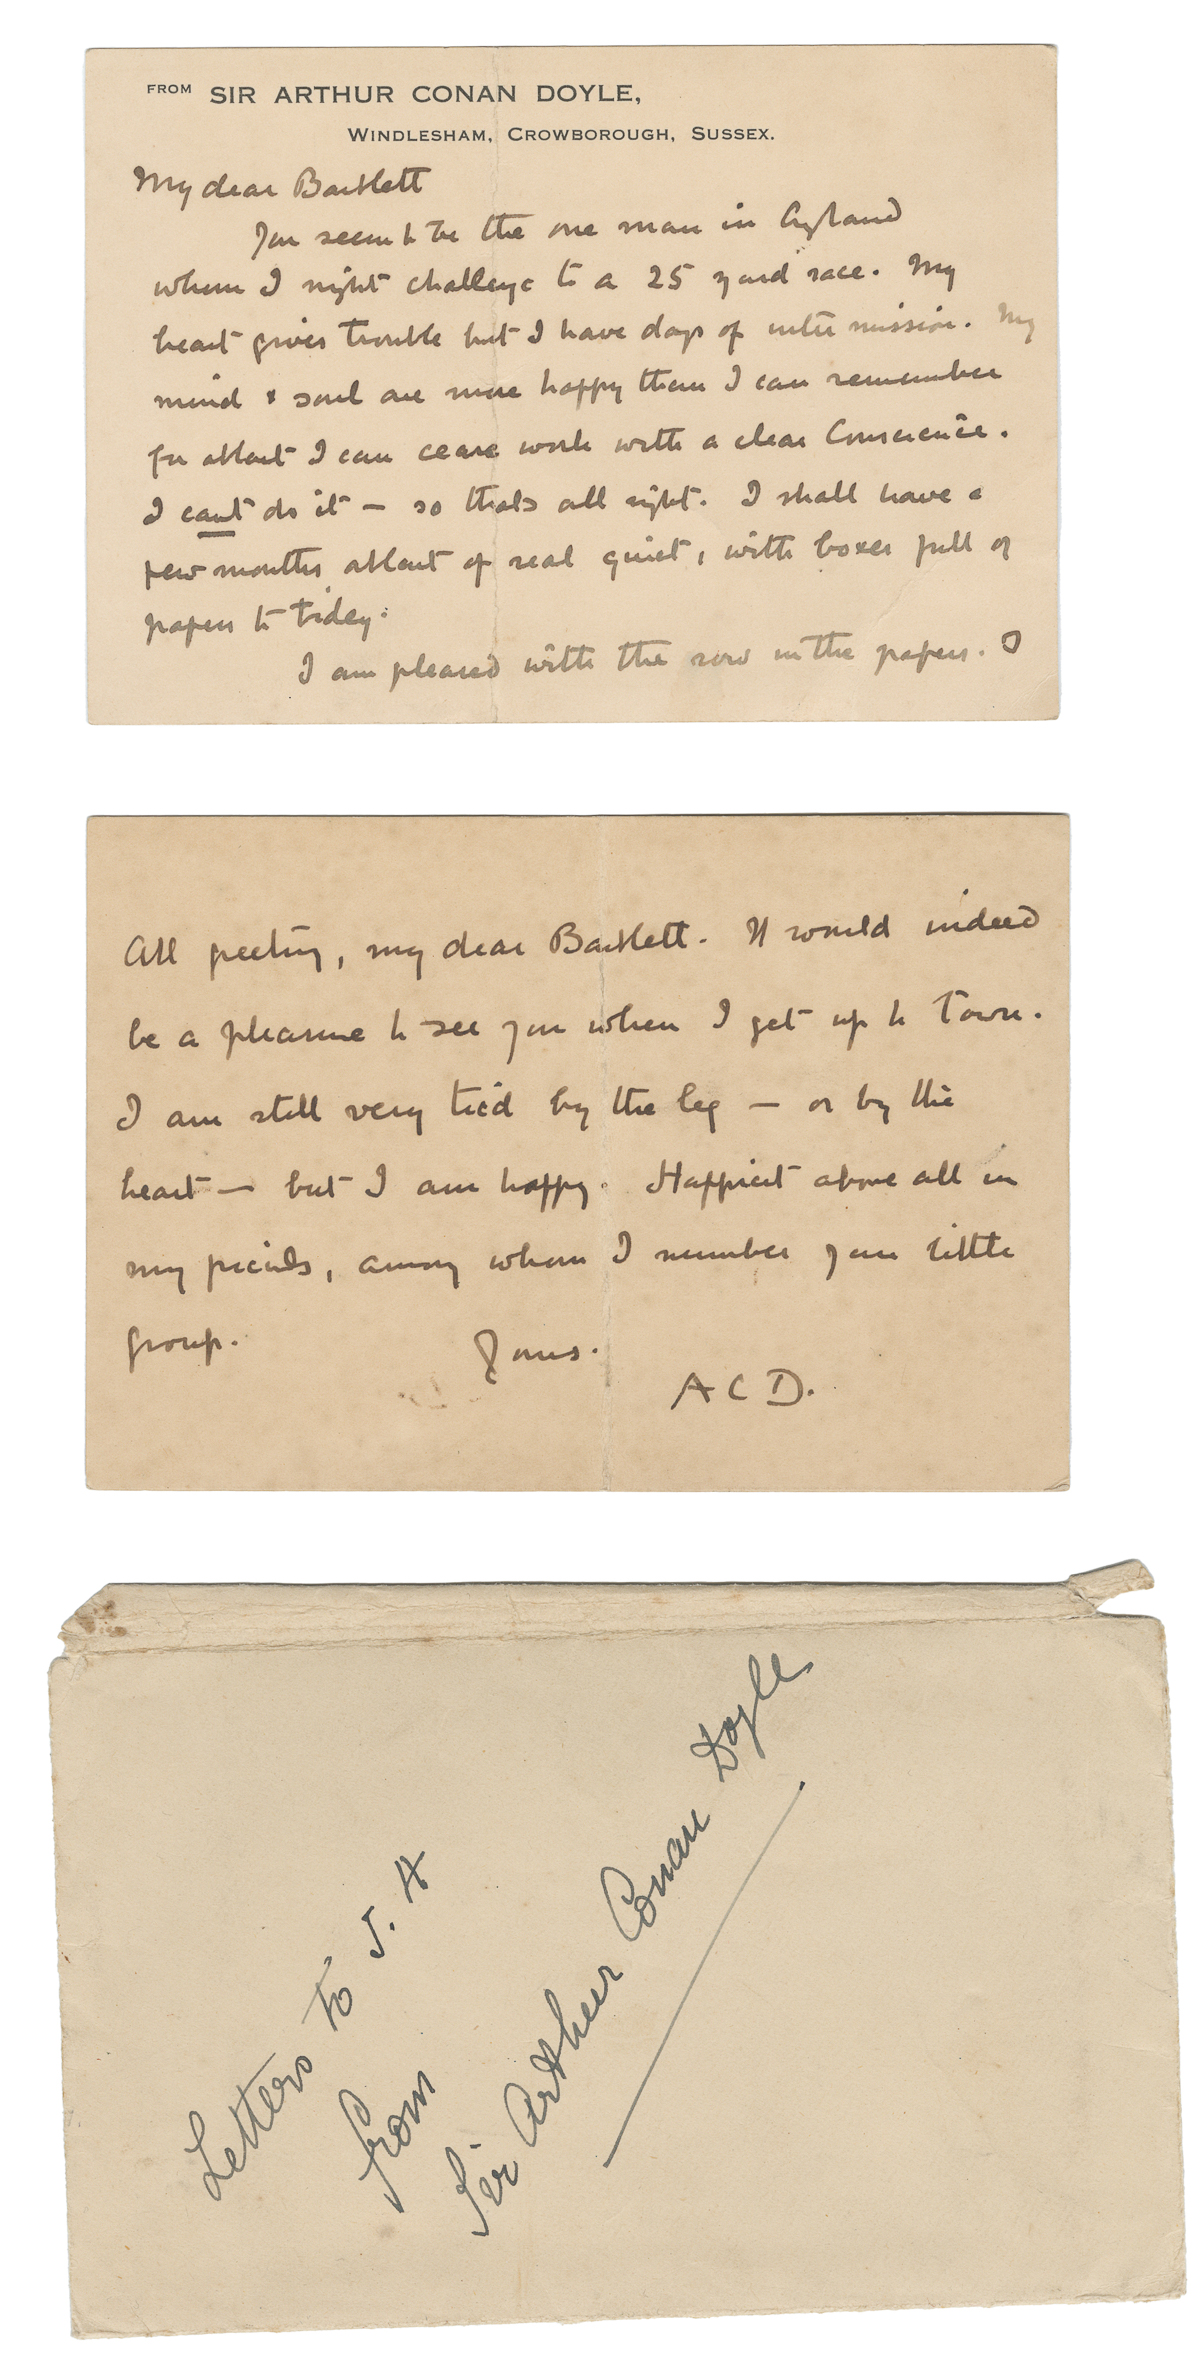 FROM SIR ARTHUR CONAN DOYLE,
WINDLESHAM, CROWBOROUGH, SUSSEX.
My dear Bartlett
You seem to be the one man in England
whom I might challenge to a 25 yard race. My
heart gives trouble but I have days of intermission. My
mind & soul are more happy than I can remember
for at last I can cease work with a clear Conscience.
I cant do it — so thats all right. I shall have a
few months at last of real quiet, with boxes full of
papers to tidey.
I am pleased with the row in the papers. I
All greeting, my dear Bartlett. It would indeed
be a pleasure to see you when I get up to Town.
I am still very tied by the leg — or by the
heart — but I am happy. Happiest above all in
my friends, among whom I number your little
group.
Yours.
A C D.
Letters to J. H
from
Sir Arthur Conan Doyle